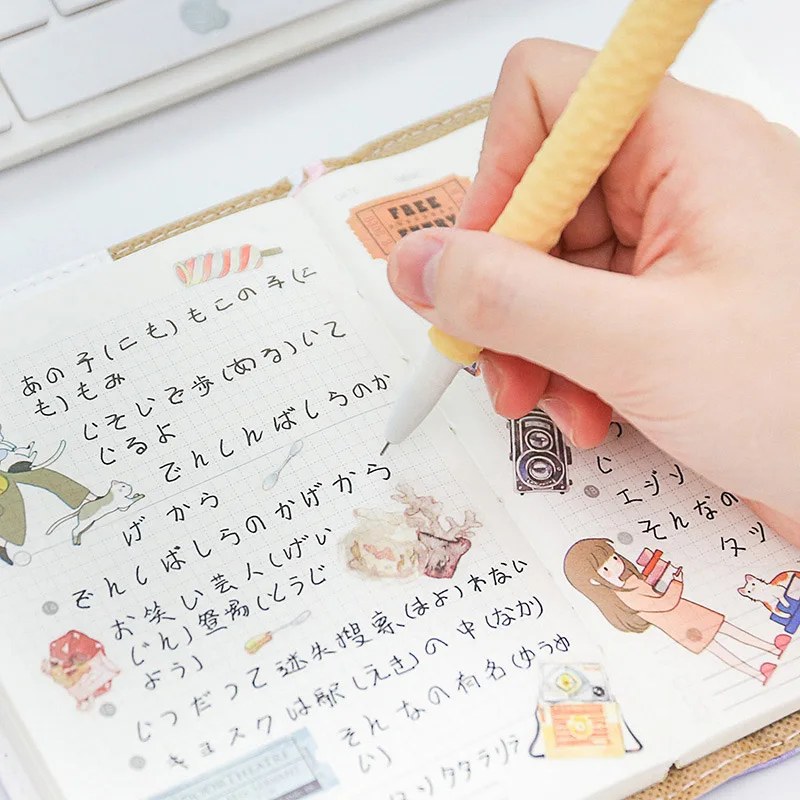 あの子(こも)もこの子(こ
も)もみ
じそじを歩(ある)いて
じるよ
でんしんばしらのか
げから
でんしばしらのかげから
お笑い芸人(げい
じん)登場(とうじ
よう)
じつだって迷失搜索(まよ)わない
キョスクは駅(えき)の中(なか)
そんなの有名(ゆうゆ
い)
タタラリラ
FREE
ENTRY
じ
エジソ
そんなの
タツ